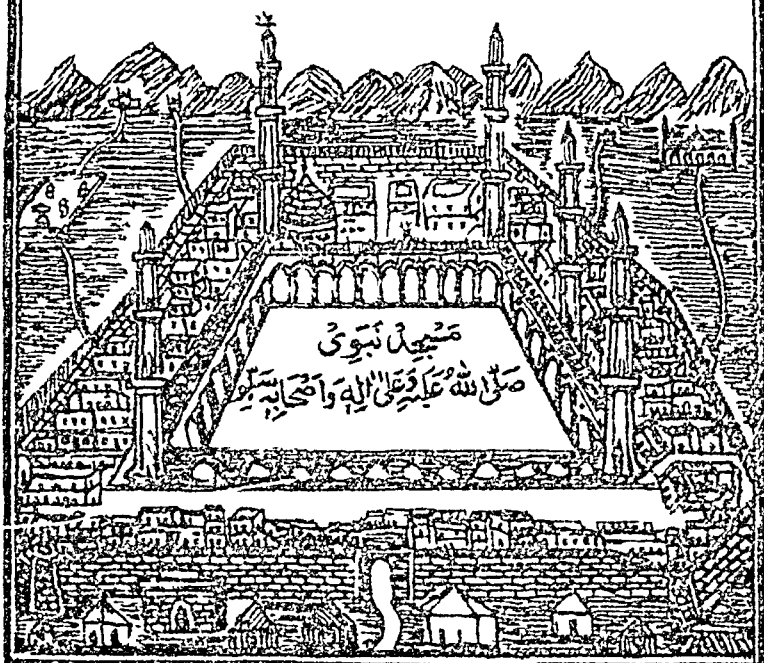 مَسْجِدْ نَبَوِیْ
صَلَّی اللّٰهُ عَلَیْهِ وَعَلٰی اٰلِهٖ وَاَصْحَابِهٖ وَسَلَّمْ